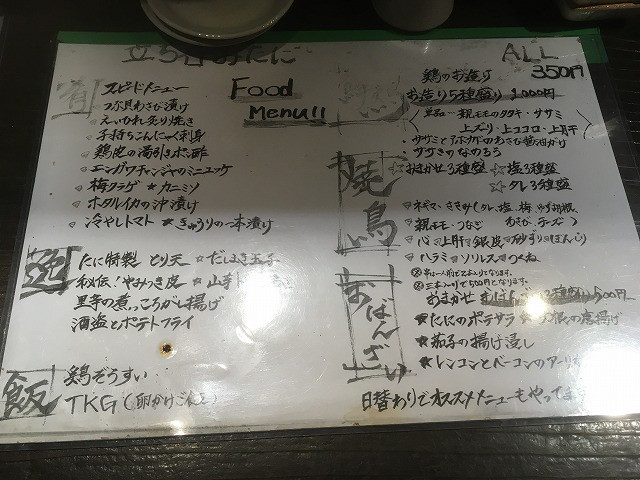 Food
Menu!!
スピードメニュー
つぶ貝わさび漬け
えいひれ炙り焼き
子持ちこんにゃく刺身
鶏皮の湯引きポン酢
エンガワチャンジャのミニユッケ
梅クラゲ ★ カニミソ
ホタルイカの沖漬け
冷やしトマト ★ きゅうりの一本漬け
たに特製 とり天 ☆ だしまき玉子
秘伝!やみつき皮 ☆
里芋の煮っころがし揚げ
酒盗とポテトフライ
飯
鶏ぞうすい
TKG(卵かけごはん)
ALL
350円
鶏のお造り
お造り5種盛り 1000円
親モモのタタキ・ササミ
上ズリ・上ココロ・上肝
ササミとアボカドのわさび醤油がけ
ササミのなめろう
焼鳥
☆おまかせ3種盛 ☆ 塩3種盛
☆ タレ3種盛
ネギマ・ささみ(タレ、塩、梅、ゆず胡椒、
わさび、チーズ)
親モモ・つなぎ
心・上肝・銀皮・砂ずり・ぼんじり
ハラミ・ソリレス・つくね
※串は一人前で2本入りとなります。
※三本入りで500円となります。
おばんざい
★たにのポテサラ
★茄子の揚げ浸し
★レンコンとベーコンの
日替わりでオススメメニューもやってます